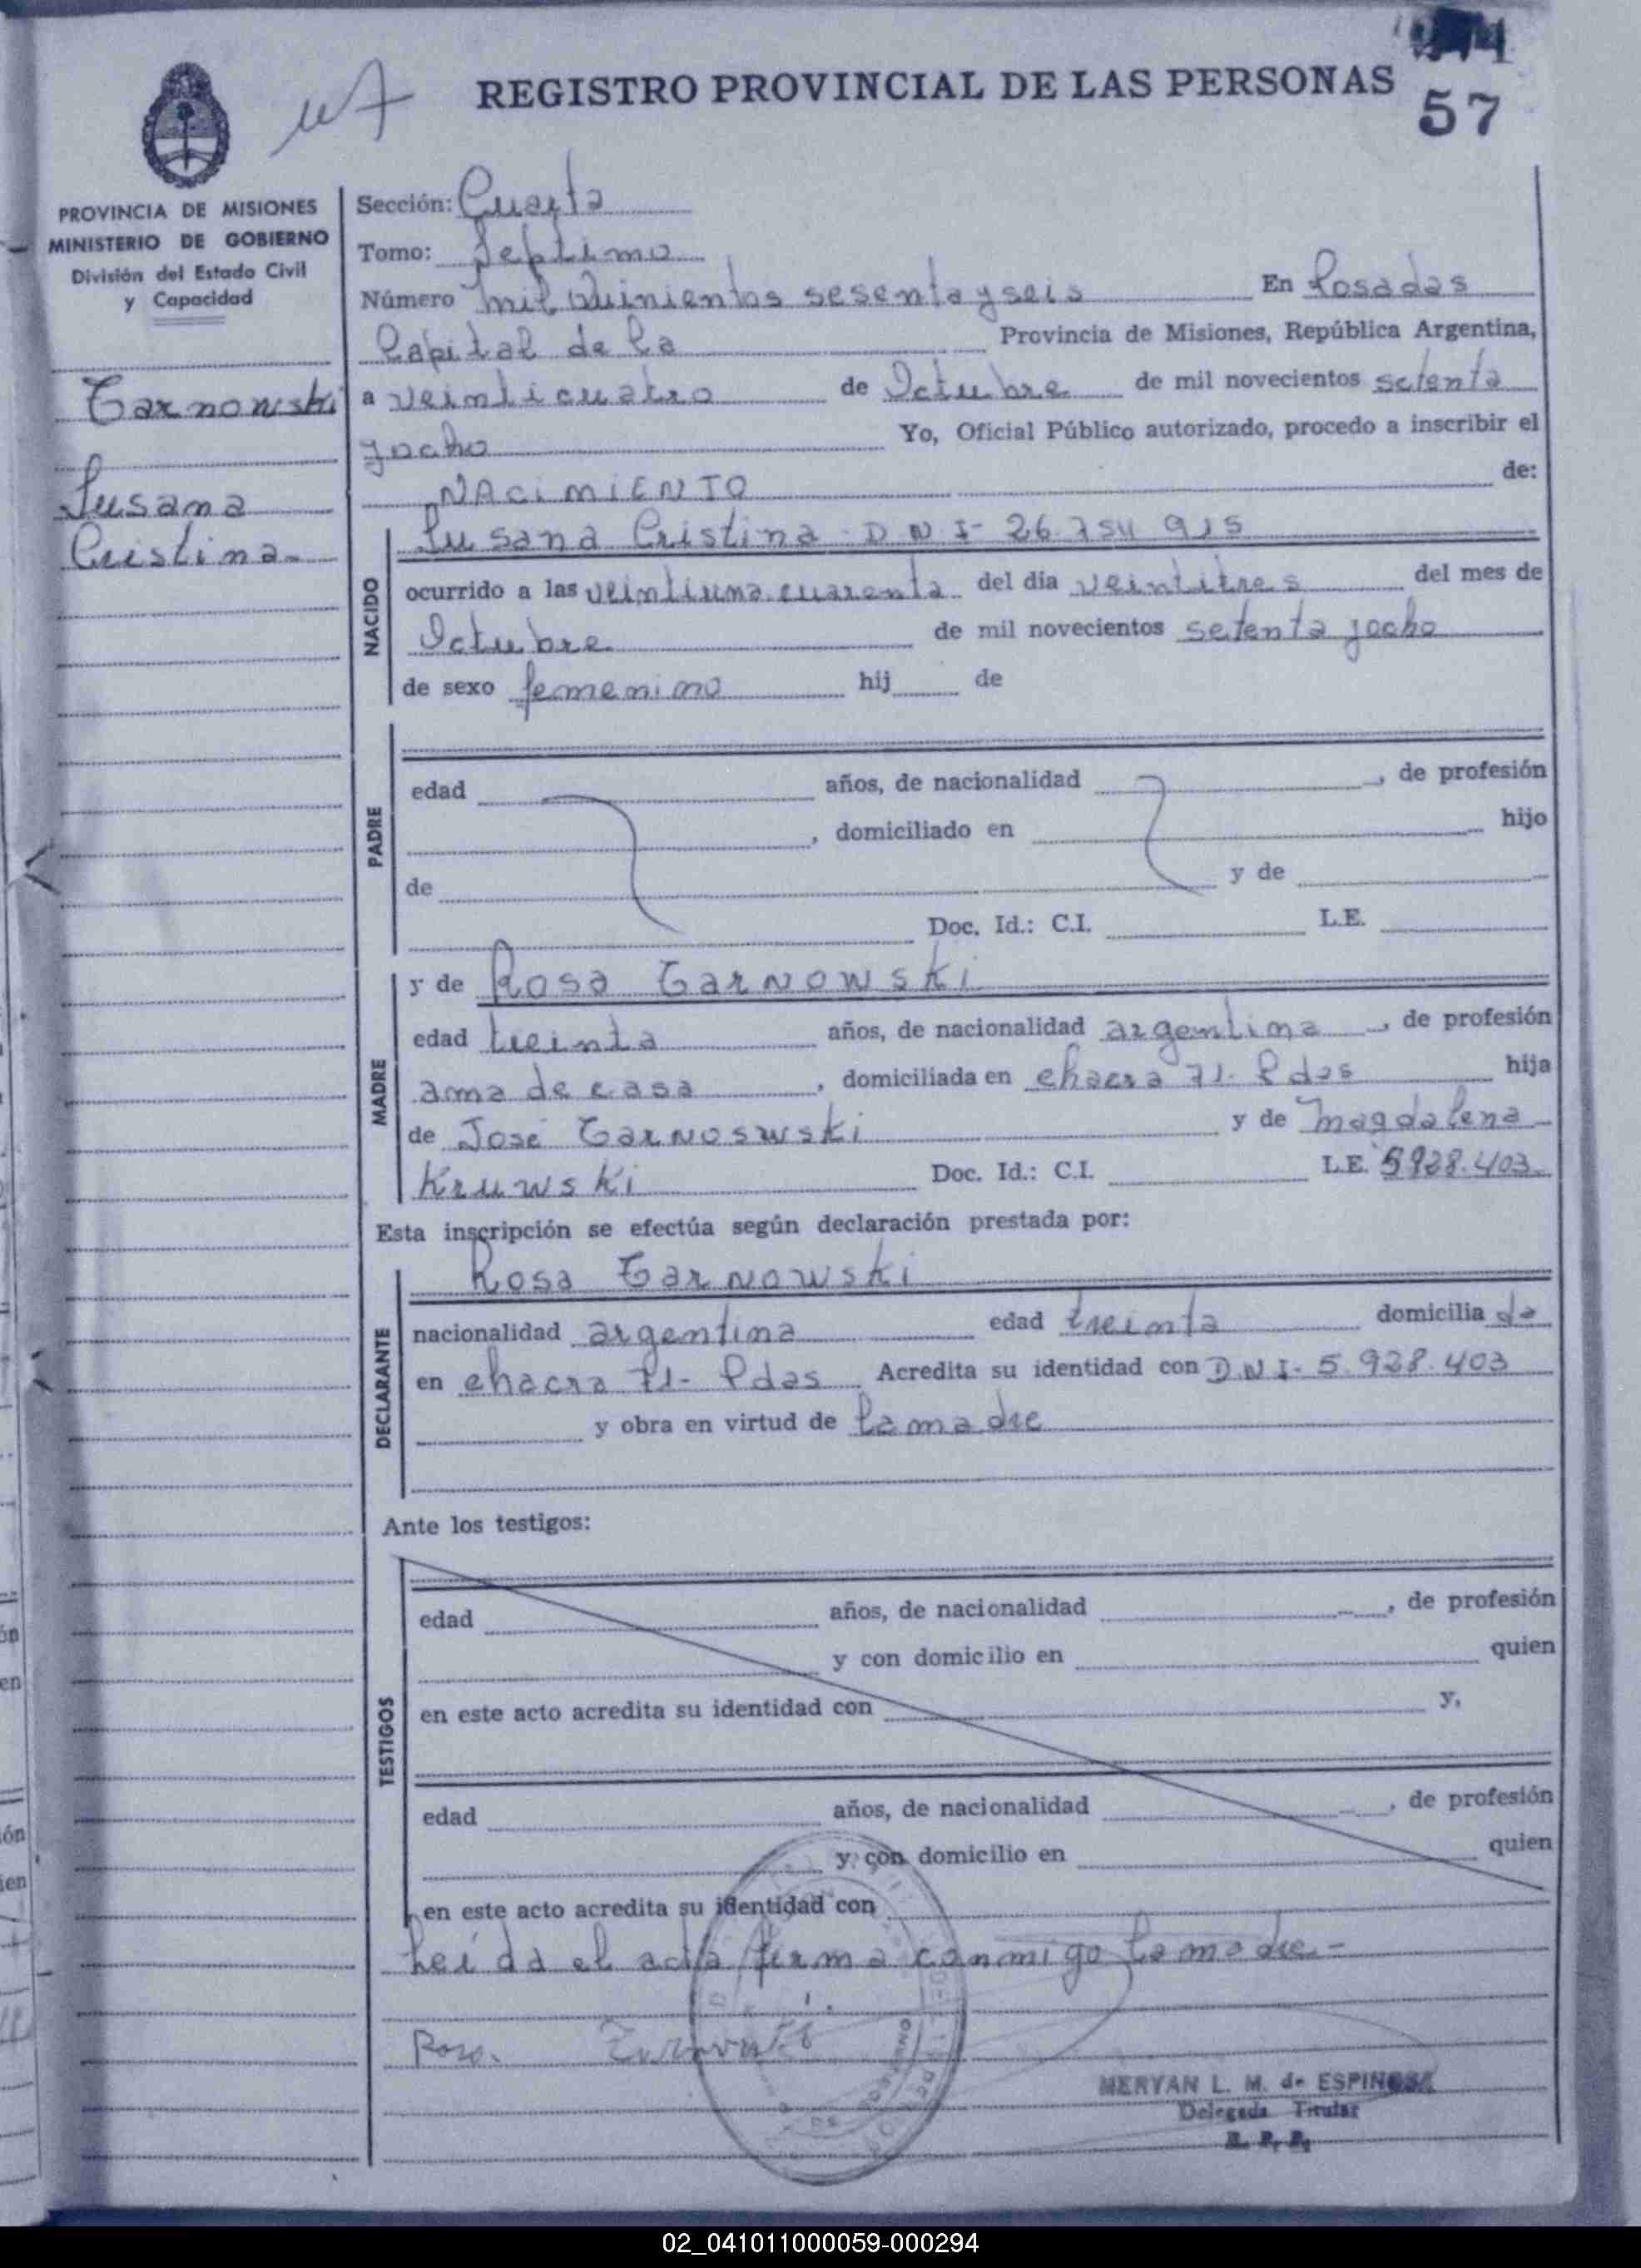 REGISTRO PROVINCIAL DE LAS PERSONAS
57
PROVINCIA DE MISIONES
MINISTERIO DE GOBIERNO
División del Estado Civil
y Capacidad
Tarnowski
Susana
Cristina-
Sección: Cuarta
Tomo: Septimo
Número mil quinientos sesenta y seis En Posadas
Capital de la Provincia de Misiones, República Argentina,
a veinticuatro de Octubre de mil novecientos setenta
yocho Yo, Oficial Público autorizado, procedo a inscribir el
NACIMIENTO de:
NACIDO
Susana Cristina - D N I - 26.754.915
ocurrido a las veintiuna cuarenta del día veintitres del mes de
Octubre de mil novecientos setenta yocho
de sexo femenino hij de
PADRE
edad años, de nacionalidad , de profesión
, domiciliado en hijo
de y de
Doc. Id.: C.I. L.E.
MADRE
y de Rosa Tarnowski
edad treinta años, de nacionalidad argentina , de profesión
ama de casa , domiciliada en chacra 71- Pdas hija
de José Tarnoswski y de Magdalena
Kruwski Doc. Id.: C.I. L.E. 5928.403-
Esta inscripción se efectúa según declaración prestada por:
DECLARANTE
Rosa Tarnowski
nacionalidad argentina edad treinta domicilia da
en chacra 71- Pdas Acredita su identidad con D N I - 5.928.403
y obra en virtud de la madre
Ante los testigos:
TESTIGOS
edad años, de nacionalidad , de profesión
y con domicilio en quien
en este acto acredita su identidad con y,
edad años, de nacionalidad , de profesión
y con domicilio en quien
en este acto acredita su identidad con
Leída el acta firma conmigo la madre-
Rosa
MERYAN L. M. de ESPINOSA
Delegada Titular
R. P. P.
02_041011000059-000294